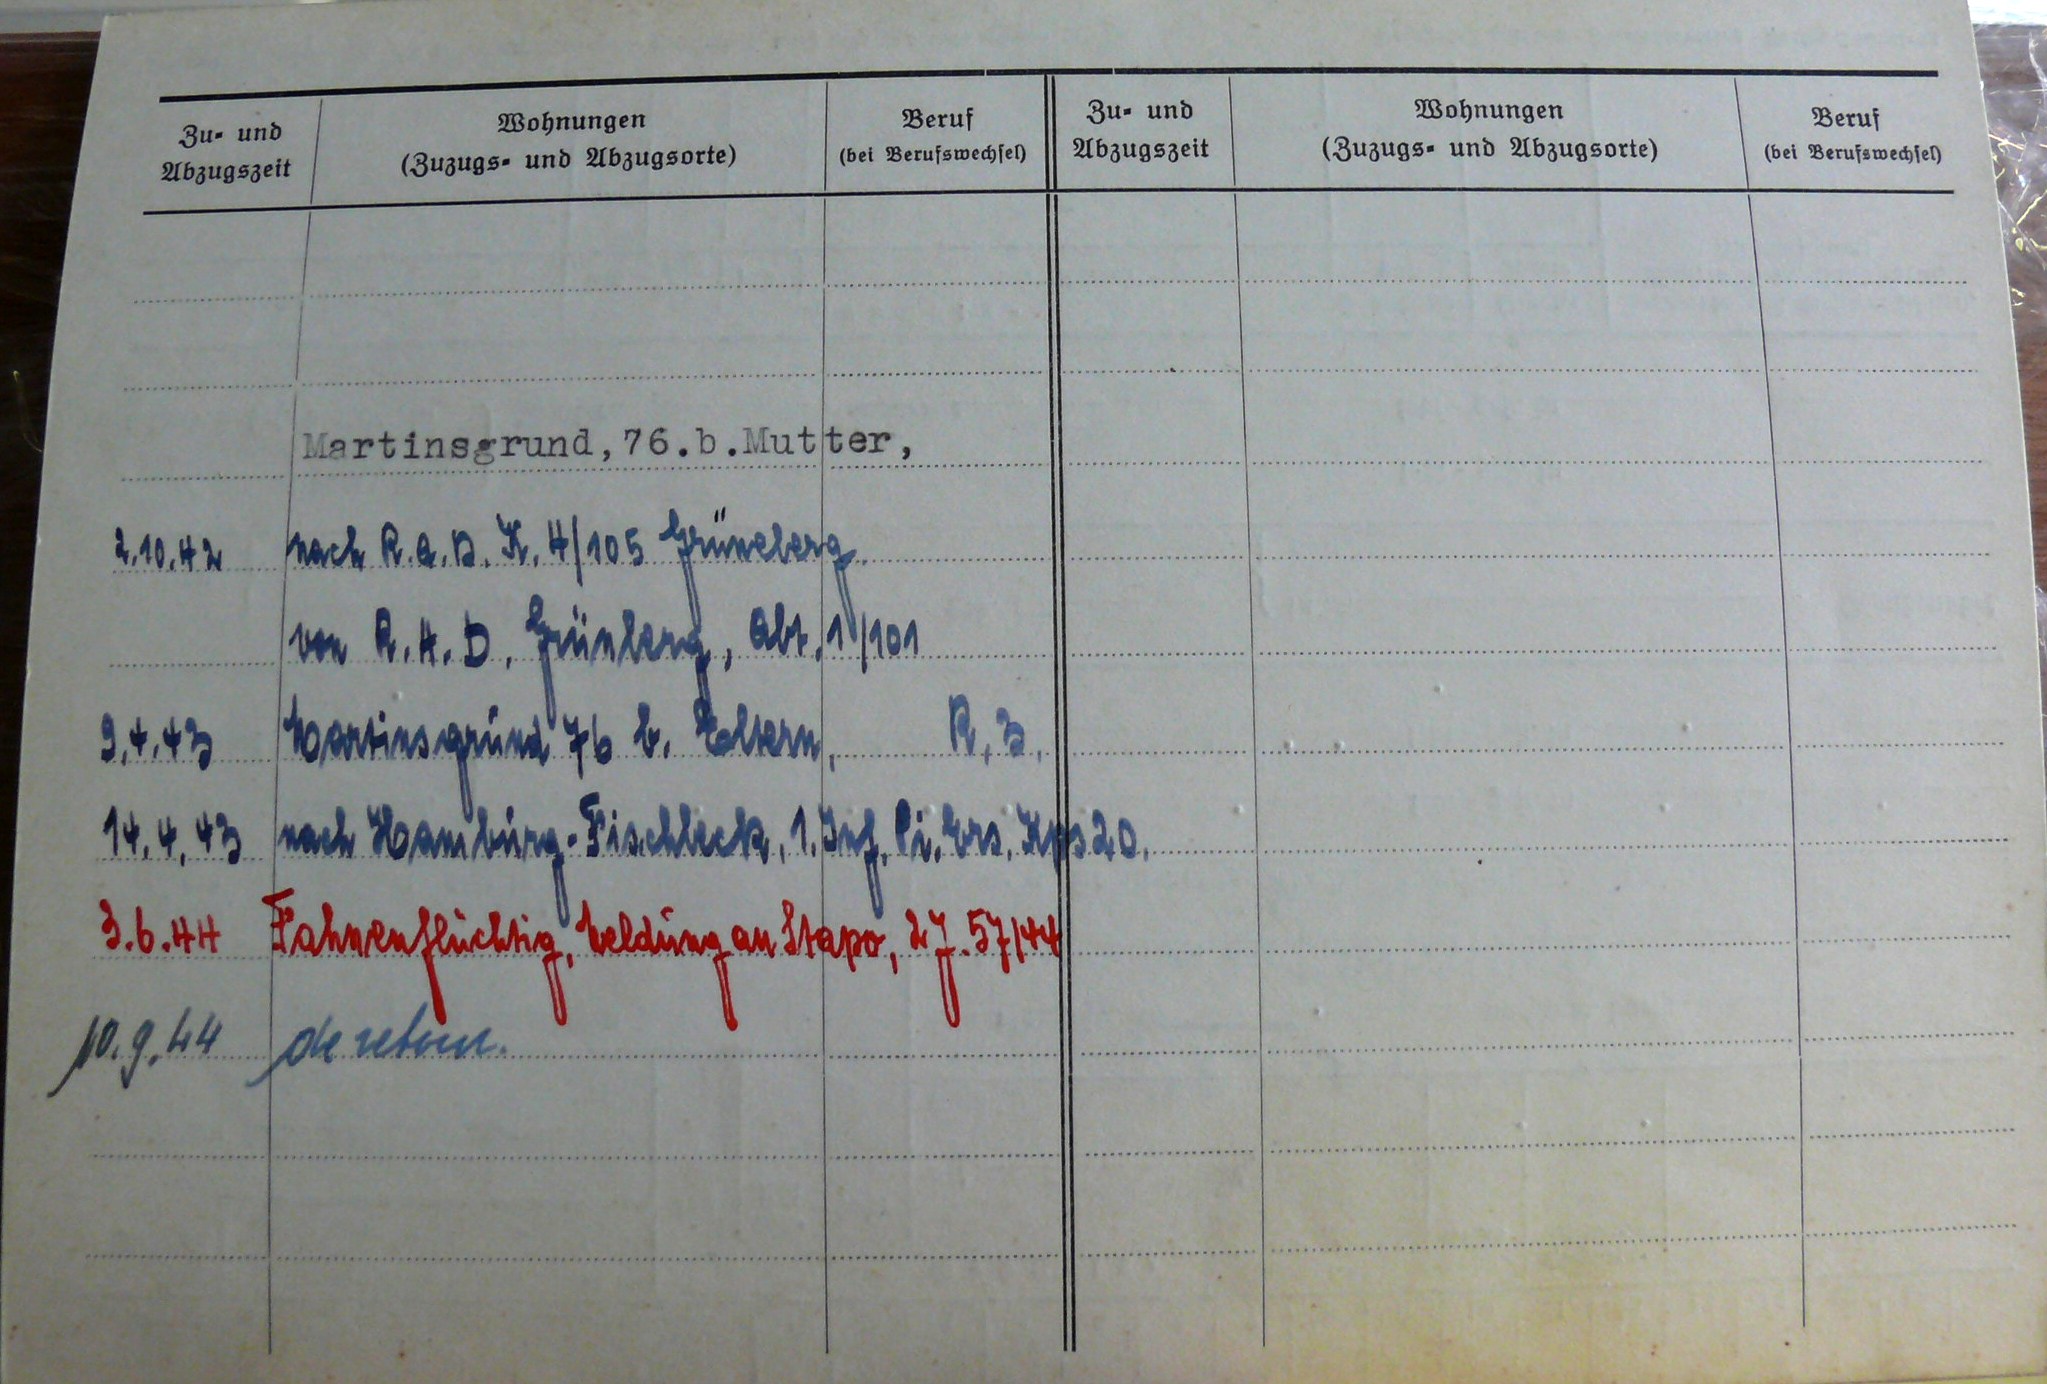 Zu- und Abzugszeit
Wohnungen
(Zuzugs- und Abzugsorte)
Beruf
(bei Berufswechsel)
Zu- und Abzugszeit
Wohnungen
(Zuzugs- und Abzugsorte)
Beruf
(bei Berufswechsel)
Martinsgrund, 76.b.Mutter,
2.10.42 nach R.A.D. K. 4/105 Grüneberg.
von R.A.D. Grünberg, Abt. 1/101
9.4.43 Martinsgrund 76 b. Eltern, R.B.
14.4.43 nach Hamburg-Fischbeck, 1. Inf. Pi. Ers. Kp. 20.
3.6.44 Fahnenflüchtig, Meldung an Stapo, 27.57/44
10.9.44 de retour.